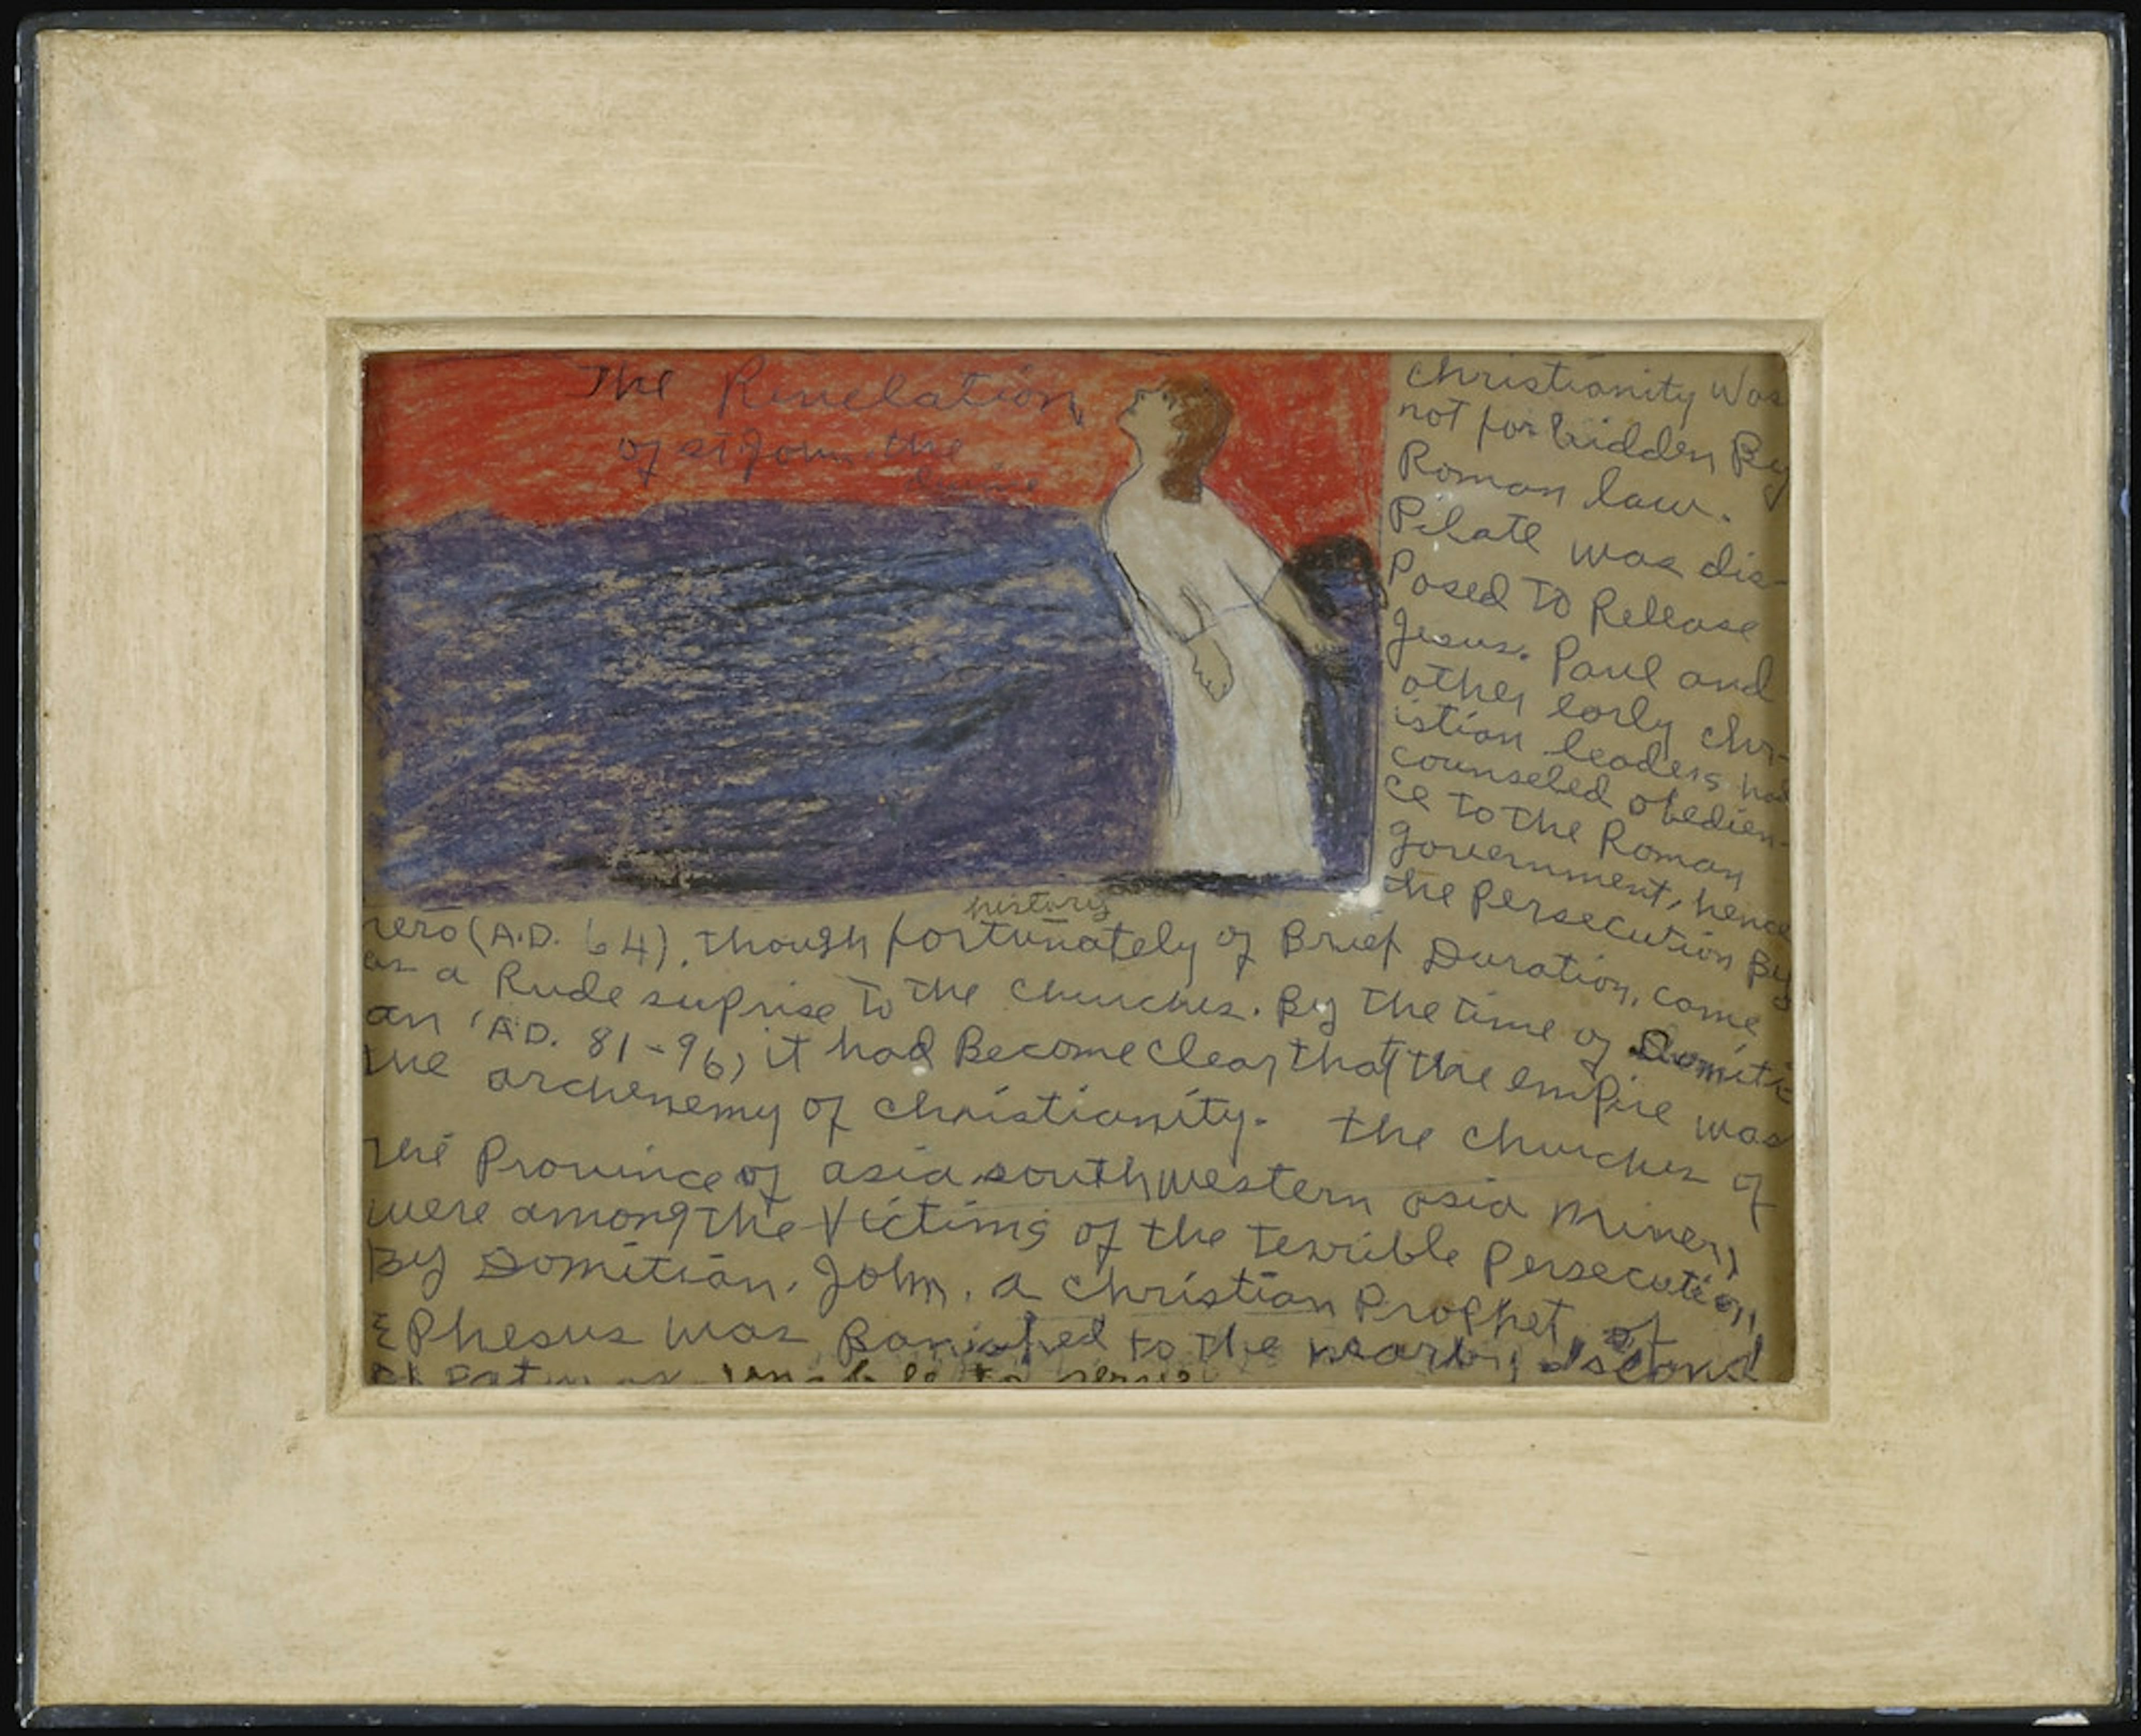 The Revelation
of st John the
divine
christianity was
not forbidden By
Roman law.
Pilate was dis-
posed To Release
Jesus. Paul and
other early chr-
istian leaders had
counseled obedien-
ce to the Roman
government, hence
the persecution By
history
nero (A.D. 64), though fortunately of Brief Duration, came
as a Rude suprise to the churches. By the time of Domiti
an (A.D. 81-96) it had Become clear that the empire was
the archenemy of christianity. the churches of
the Province of asia southwestern asia miner,
were among the victims of the terrible persecution,
By Domitian. John, a christian Prophet, of
Ephesus was Banished to the nearby island
of Patmos. unable to serve